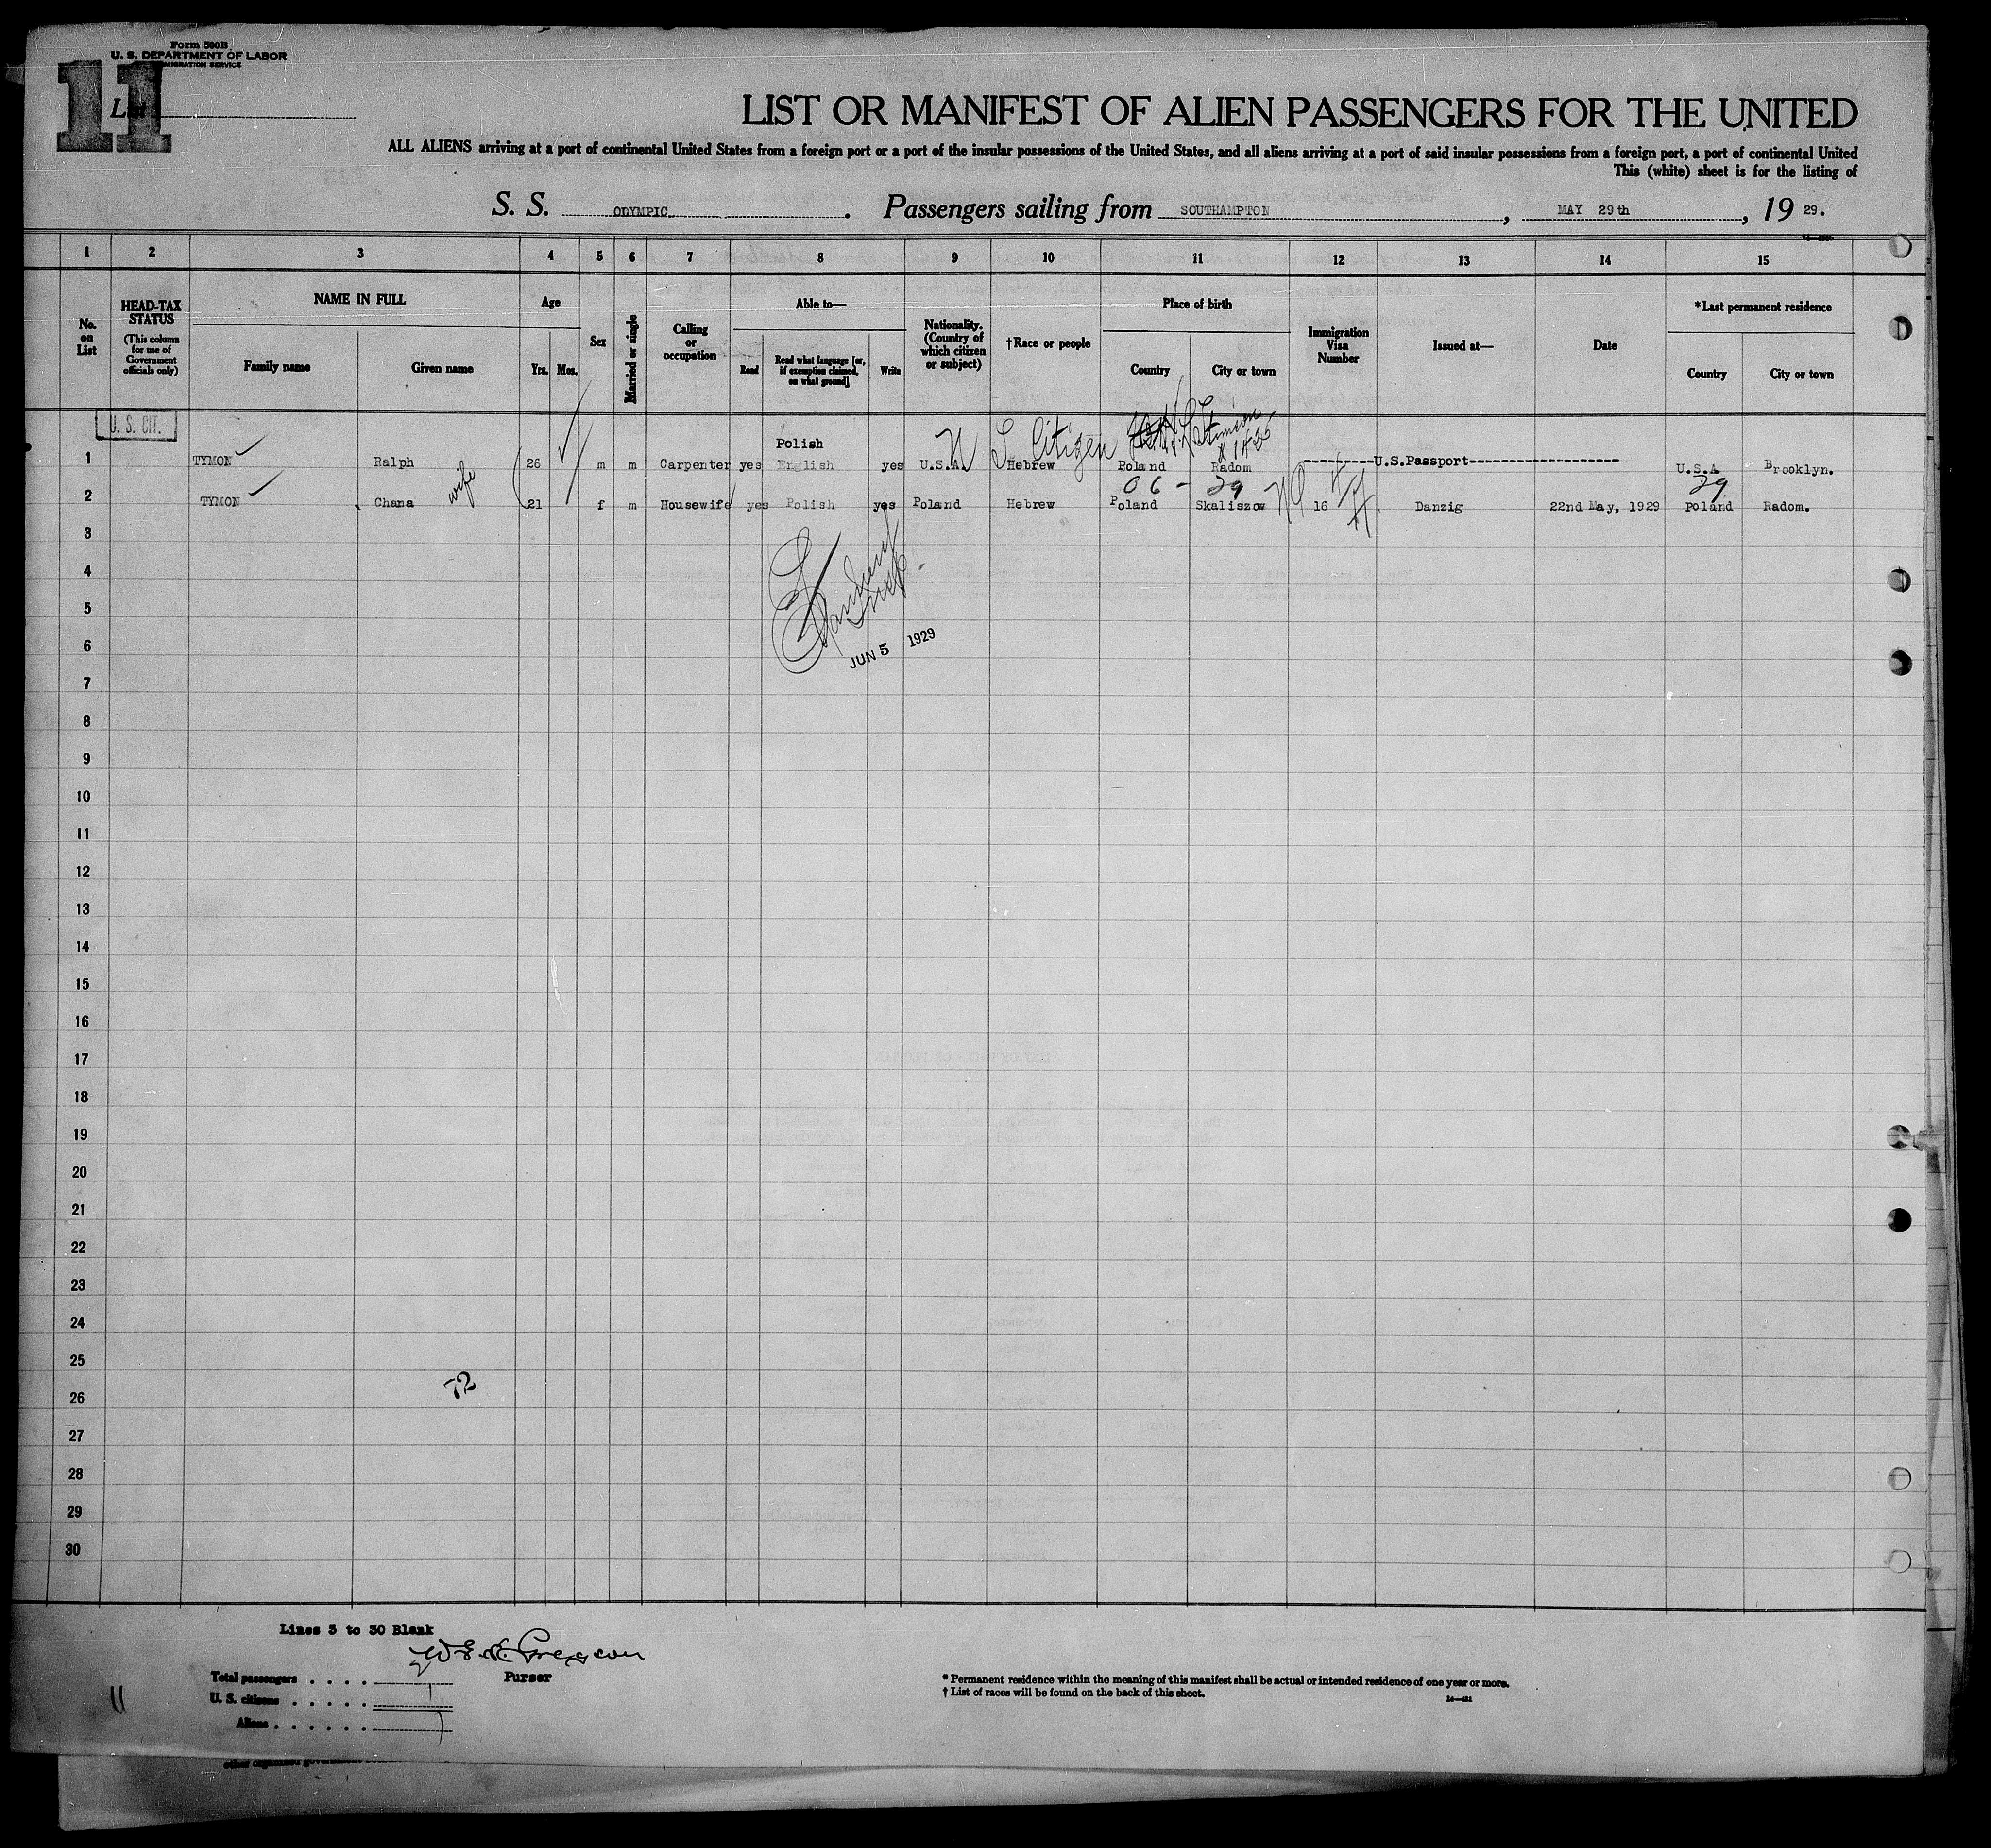 Form 500B
U. S. DEPARTMENT OF LABOR
IMMIGRATION SERVICE
11
List
LIST OR MANIFEST OF ALIEN PASSENGERS FOR THE UNITED
ALL ALIENS arriving at a port of continental United States from a foreign port or a port of the insular possessions of the United States, and all aliens arriving at a port of said insular possessions from a foreign port, a port of continental United
This (white) sheet is for the listing of
S. S. OLYMPIC. Passengers sailing from SOUTHAMPTON, MAY 29th, 19 29.
1 2 3 4 5 6 7 8 9 10 11 12 13 14 15
No. on List
HEAD-TAX STATUS
(This column for use of Government officials only)
NAME IN FULL
Family name Given name
Age
Yrs. Mos.
Sex
Married or single
Calling or occupation
Able to—
Read
Read what language [or, if exemption claimed, on what ground]
Write
Nationality. (Country of which citizen or subject)
†Race or people
Place of birth
Country City or town
Immigration Visa Number
Issued at—
Date
*Last permanent residence
Country City or town
U. S. CIT.
U S Citizen
Polish
1 TYMON Ralph 26 m m Carpenter yes English yes U.S.A. Hebrew Poland Radom ------U.S.Passport------ U.S.A Brooklyn.
wife
06 - 29 29
2 TYMON Chana 21 f m Housewife yes Polish yes Poland Hebrew Poland Skaliszow NQ 16 Danzig 22nd May, 1929 Poland Radom.
3
4
5
6
JUN 5 1929
7
8
9
10
11
12
13
14
15
16
17
18
19
20
21
22
23
24
25
72
26
27
28
29
30
Lines 3 to 30 Blank
Total passengers . . . . 2
Purser
U. S. citizens . . . . . 1
Aliens . . . . . . 1
11
* Permanent residence within the meaning of this manifest shall be actual or intended residence of one year or more.
† List of races will be found on the back of this sheet.